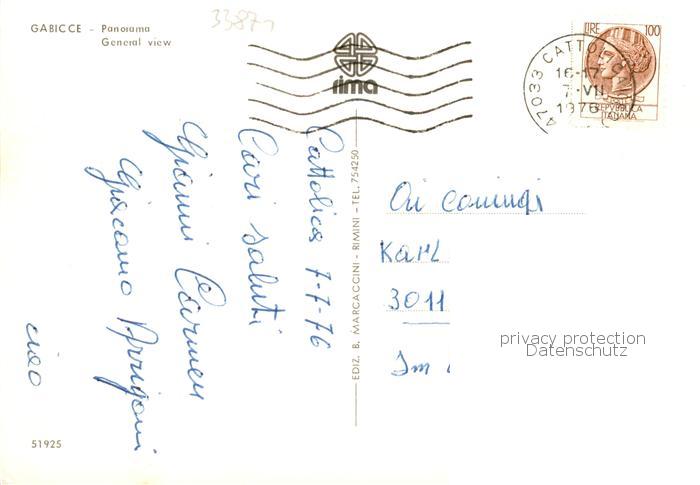 GABICCE - Panorama
General view
33871
rima
LIRE 100
REPVBBLICA
ITALIANA
47033 CATTOLICA
16-17
7-VII
1976
Cattolica 7-7-76
Cari saluti
Gianni Carmen
Giacomo Arrigoni
ciao
EDIZ. B. MARCACCINI - RIMINI - TEL. 754250
Ai coniugi
Karl
3011
Im
privacy protection
Datenschutz
51925